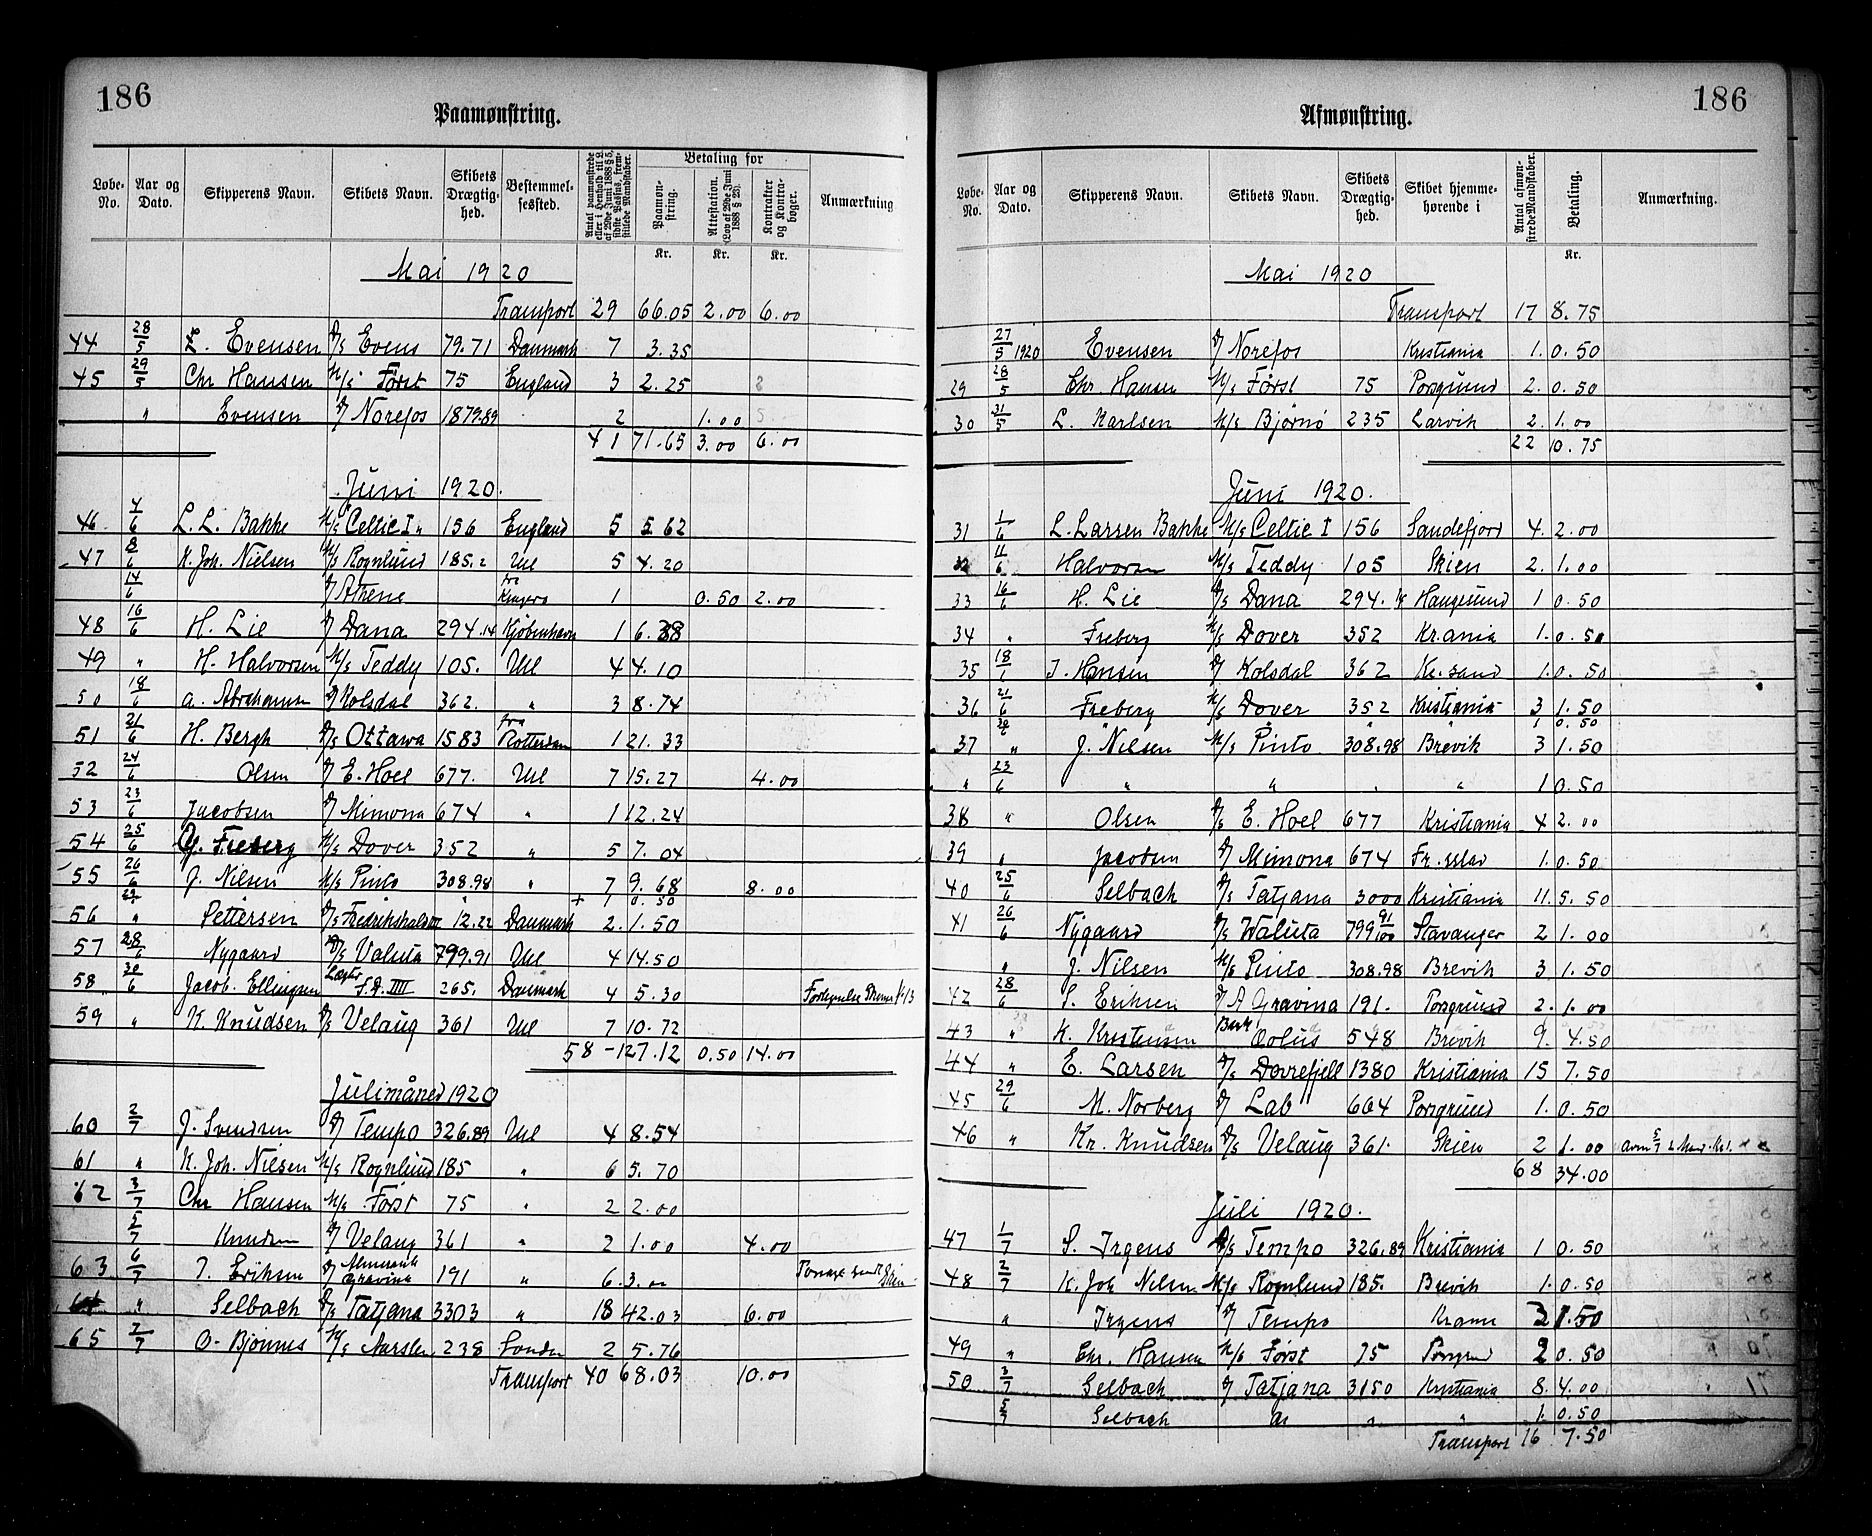 186
Paamønstring.
Løbe-No. Aar og Dato. Skipperens Navn. Skibets Navn. Skibets Drægtighed. Bestemmelsessted. Antal paamønstrede eller i Henhold til L. af 29de Juni 1888 § 5, sidste Passus, fremstillede Mandskaber. Betaling for Paamønstring. Attestation. (Lov af 29de Juni 1888 § 23). Kontrakter og Kontrabøger. Anmærkning
Kr. Kr. Kr.
Mai 1920
Transport 29 66.05 2.00 6.00
44 28/5 Evensen D/S Evens 79.71 Danmark 7 3.35
45 29/5 Chr Hansen M/S Först 75 England 3 2.25
" Evensen D/ Norefos 1879.89 2 1.00
41 71.65 3.00 6.00
Juni 1920.
46 4/6 L. L. Bakke M/S Celtic I " 156 England 5 5.62
47 8/6 K. Joh. Nielsen M/S Rognlund 185.2 Uvl 5 4.20
14/6 D/ Athene fra Kragerø 1 0.50 2.00
48 16/6 H. Lie D/ Dana 294.14 Kjøbenhavn 1 6.38
49 " H. Halvorsen M/S Teddy 105. Uvl 4 4.10
50 18/6 A. Abrahamsen D/ Kolsdal 362. " 3 8.74
51 21/6 H. Bergh D/S Ottawa 1583 fra Rotterdam 1 21.33
52 24/6 Olsen D/ E. Hoel 677. Uvl 7 15.27 4.00
53 23/6 Jacobsen D/ Mimona 674 " 1 12.24
54 25/6 Freberg M/S Dover 352 " 5 7.04
55 26/6 J. Nilsen M/S Pinto 308.98 " 7 9.68 8.00
+ 1 0.50
56 " Pettersen D/S Fredrikshald III 12.22 Danmark 2. 1.50
57 28/6 Nygaard D/S Valuta 799.91 Uvl 4 14.50
58 30/6 Jacob Ellingsen Lægter F.D. IIII 265. Danmark 4 5.30
59 " K. Knudsen D/S Velaug 361 Uvl 7 10.72
58 - 127.12 0.50 14.00
Julimåned 1920
60 2/7 J. Svendsen D/ Tempo 326.89 Uvl 4 8.54
61 " K. Joh. Nilsen M/S Rognlund 185 " 6 5.70
62 3/7 Chr Hansen M/S Först 75 " 2 2.00
5/7 Knudsen D/ Velaug 361 " 2 1.00 4.00
63 6/7 J. Eriksen D/ Gravina 191 " 6. 3.00
64 " Selbach D/S Tatjana 3303 " 18 42.03 6.00
65 7/7 O. Bjönnes M/S 238 London 2 5.76
Transport 40 68.03 10.00
186
Afmønstring.
Løbe-No. Aar og Dato. Skipperens Navn. Skibets Navn. Skibets Drægtighed. Skibet hjemmehørende i Antal afmønstrede Mandskaber. Betaling. Anmærkning.
Kr.
Mai 1920
Transport 17 8.75
27/5 1920 Evensen D/ Norefos Kristiania 1. 0.50
29 28/5 Chr. Hansen M/S Först 75 Porsgrund 2. 0.50
30 31/5 L. Karlsen M/S Bjørnø 235 Larvik 2. 1.00
22 10.75
Juni 1920.
31 1/6 L. Larsen Bakke M/S Celtic I 156 Sandefjord 4. 2.00
32 11/6 Halvorsen M/S Teddy 105 Skien 2. 1.00
33 16/6 H. Lie D/S Dana 294.14 Haugesund 1 0.50
34 " Freberg M/S Dover 352 Kr.ania 1. 0.50
35 18/ J. Hansen D/ Kolsdal 362 Kr.sand 1. 0.50
36 21/6 Freberg M/S Dover 352 Kristiania 3 1.50
" " " 1 0.50
37 " J. Nilsen M/S Pinto 308.98 Brevik 3 1.50
" 23/6 " " " " 1 0.50
38 " Olsen D/S E. Hoel 677 Kristiania 4 2.00
39 " Jacobsen D/ Mimona 674 Fr.stad 1. 0.50
40 25/6 Selbach D/S Tatjana 3000 Kristiania 11. 5.50
41 26/6 Nygaard D/S Waluta 799 91/100 Stavanger 2 1.00
" J. Nilsen M/S Pinto 308.98 Brevik 3 1.50
42 28/6 S. Eriksen D/ A Gravina 191. Porsgrund 2. 1.00
43 " K. Kristensen Bark Æolus 548 Brevik 9. 4.50
44 " E. Larsen D/S Dovrefjell 1380 Kristiania 15 7.50
45 29/6 M. Norberg D/ Lab 604 Porsgrund 1. 0.50
46 " Kr. Knudsen D/S Velaug 361. Skien 2 1.00
68 34.00
Juli 1920.
47 1/7 S. Irgens D/S Tempo 326.89 Kristiania 1 0.50
48 2/7 K. Joh Nilsen M/S Rognlund 185. Brevik 1. 0.50
" Irgens D/ Tempo Krania 3 1.50
49 " Chr. Hansen M/S Först 75 Porsgrund 2 0.50
50 3/7 Selbach D/ Tatjana 3150 Kristiania 8. 4.00
5/7 Selbach " " 1. 0.50
Transport 16 7.50